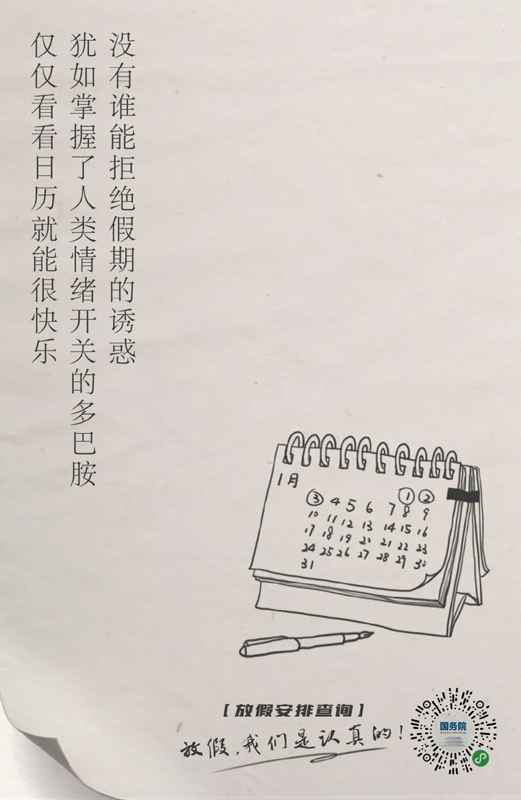 没有谁能拒绝假期的诱惑
犹如掌握了人类情绪开关的多巴胺
仅仅看看日历就能很快乐
1月
1 2
3 4 5 6 7 8 9
10 11 12 13 14 15 16
17 18 19 20 21 22 23
24 25 26 27 28 29 30
31
【放假安排查询】
放假,我们是认真的!
国务院